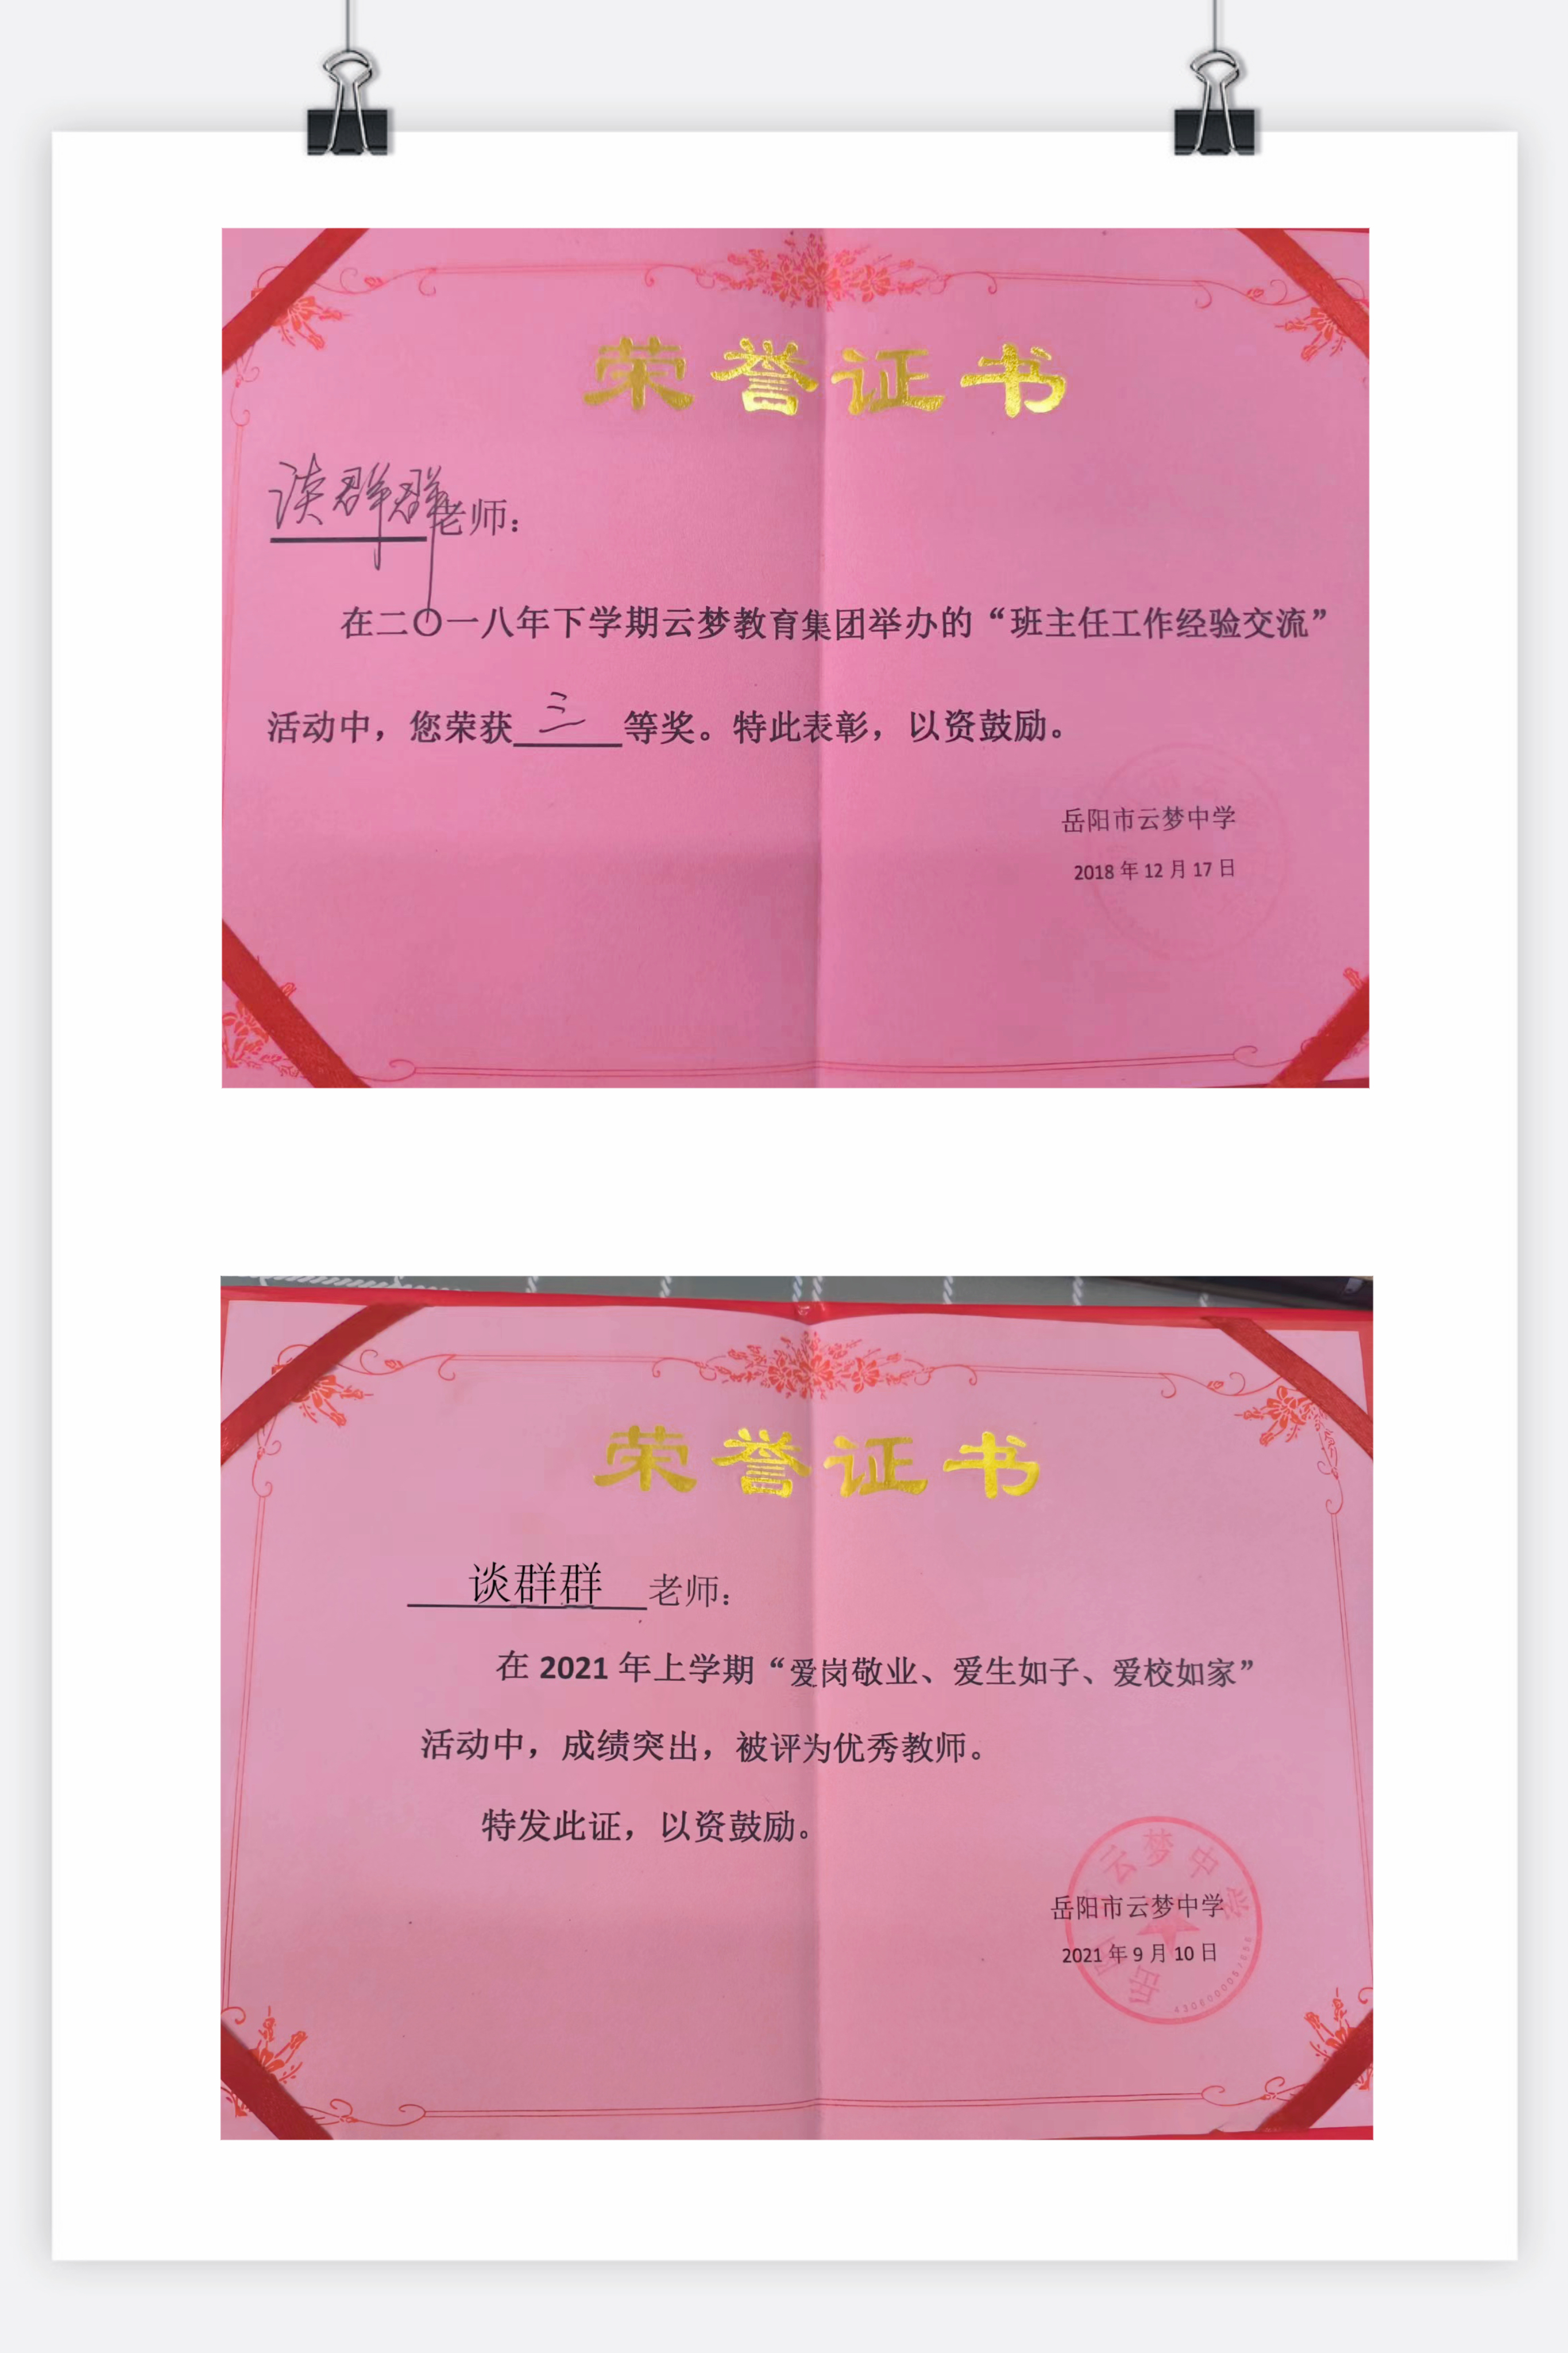 荣誉证书
谈群群老师：
在二〇一八年下学期云梦教育集团举办的“班主任工作经验交流”
活动中，您荣获三等奖。特此表彰，以资鼓励。
岳阳市云梦中学
2018年12月17日
荣誉证书
谈群群老师：
在2021年上学期“爱岗敬业、爱生如子、爱校如家”
活动中，成绩突出，被评为优秀教师。
特发此证，以资鼓励。
岳阳市云梦中学
2021年9月10日